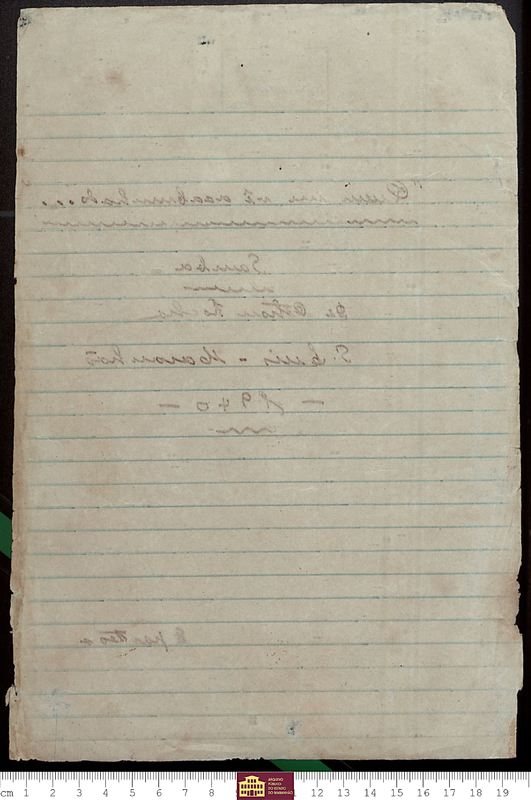 "Quem me vê acabrunhado...
Samba
De Othon Rocha
S. Luis - Maranhão
— 1940 —
8 partes
cm 1 2 3 4 5 6 7 8 12 13 14 15 16 17 18 19
ARQUIVO
PÚBLICO
DO ESTADO
DO MARANHÃO